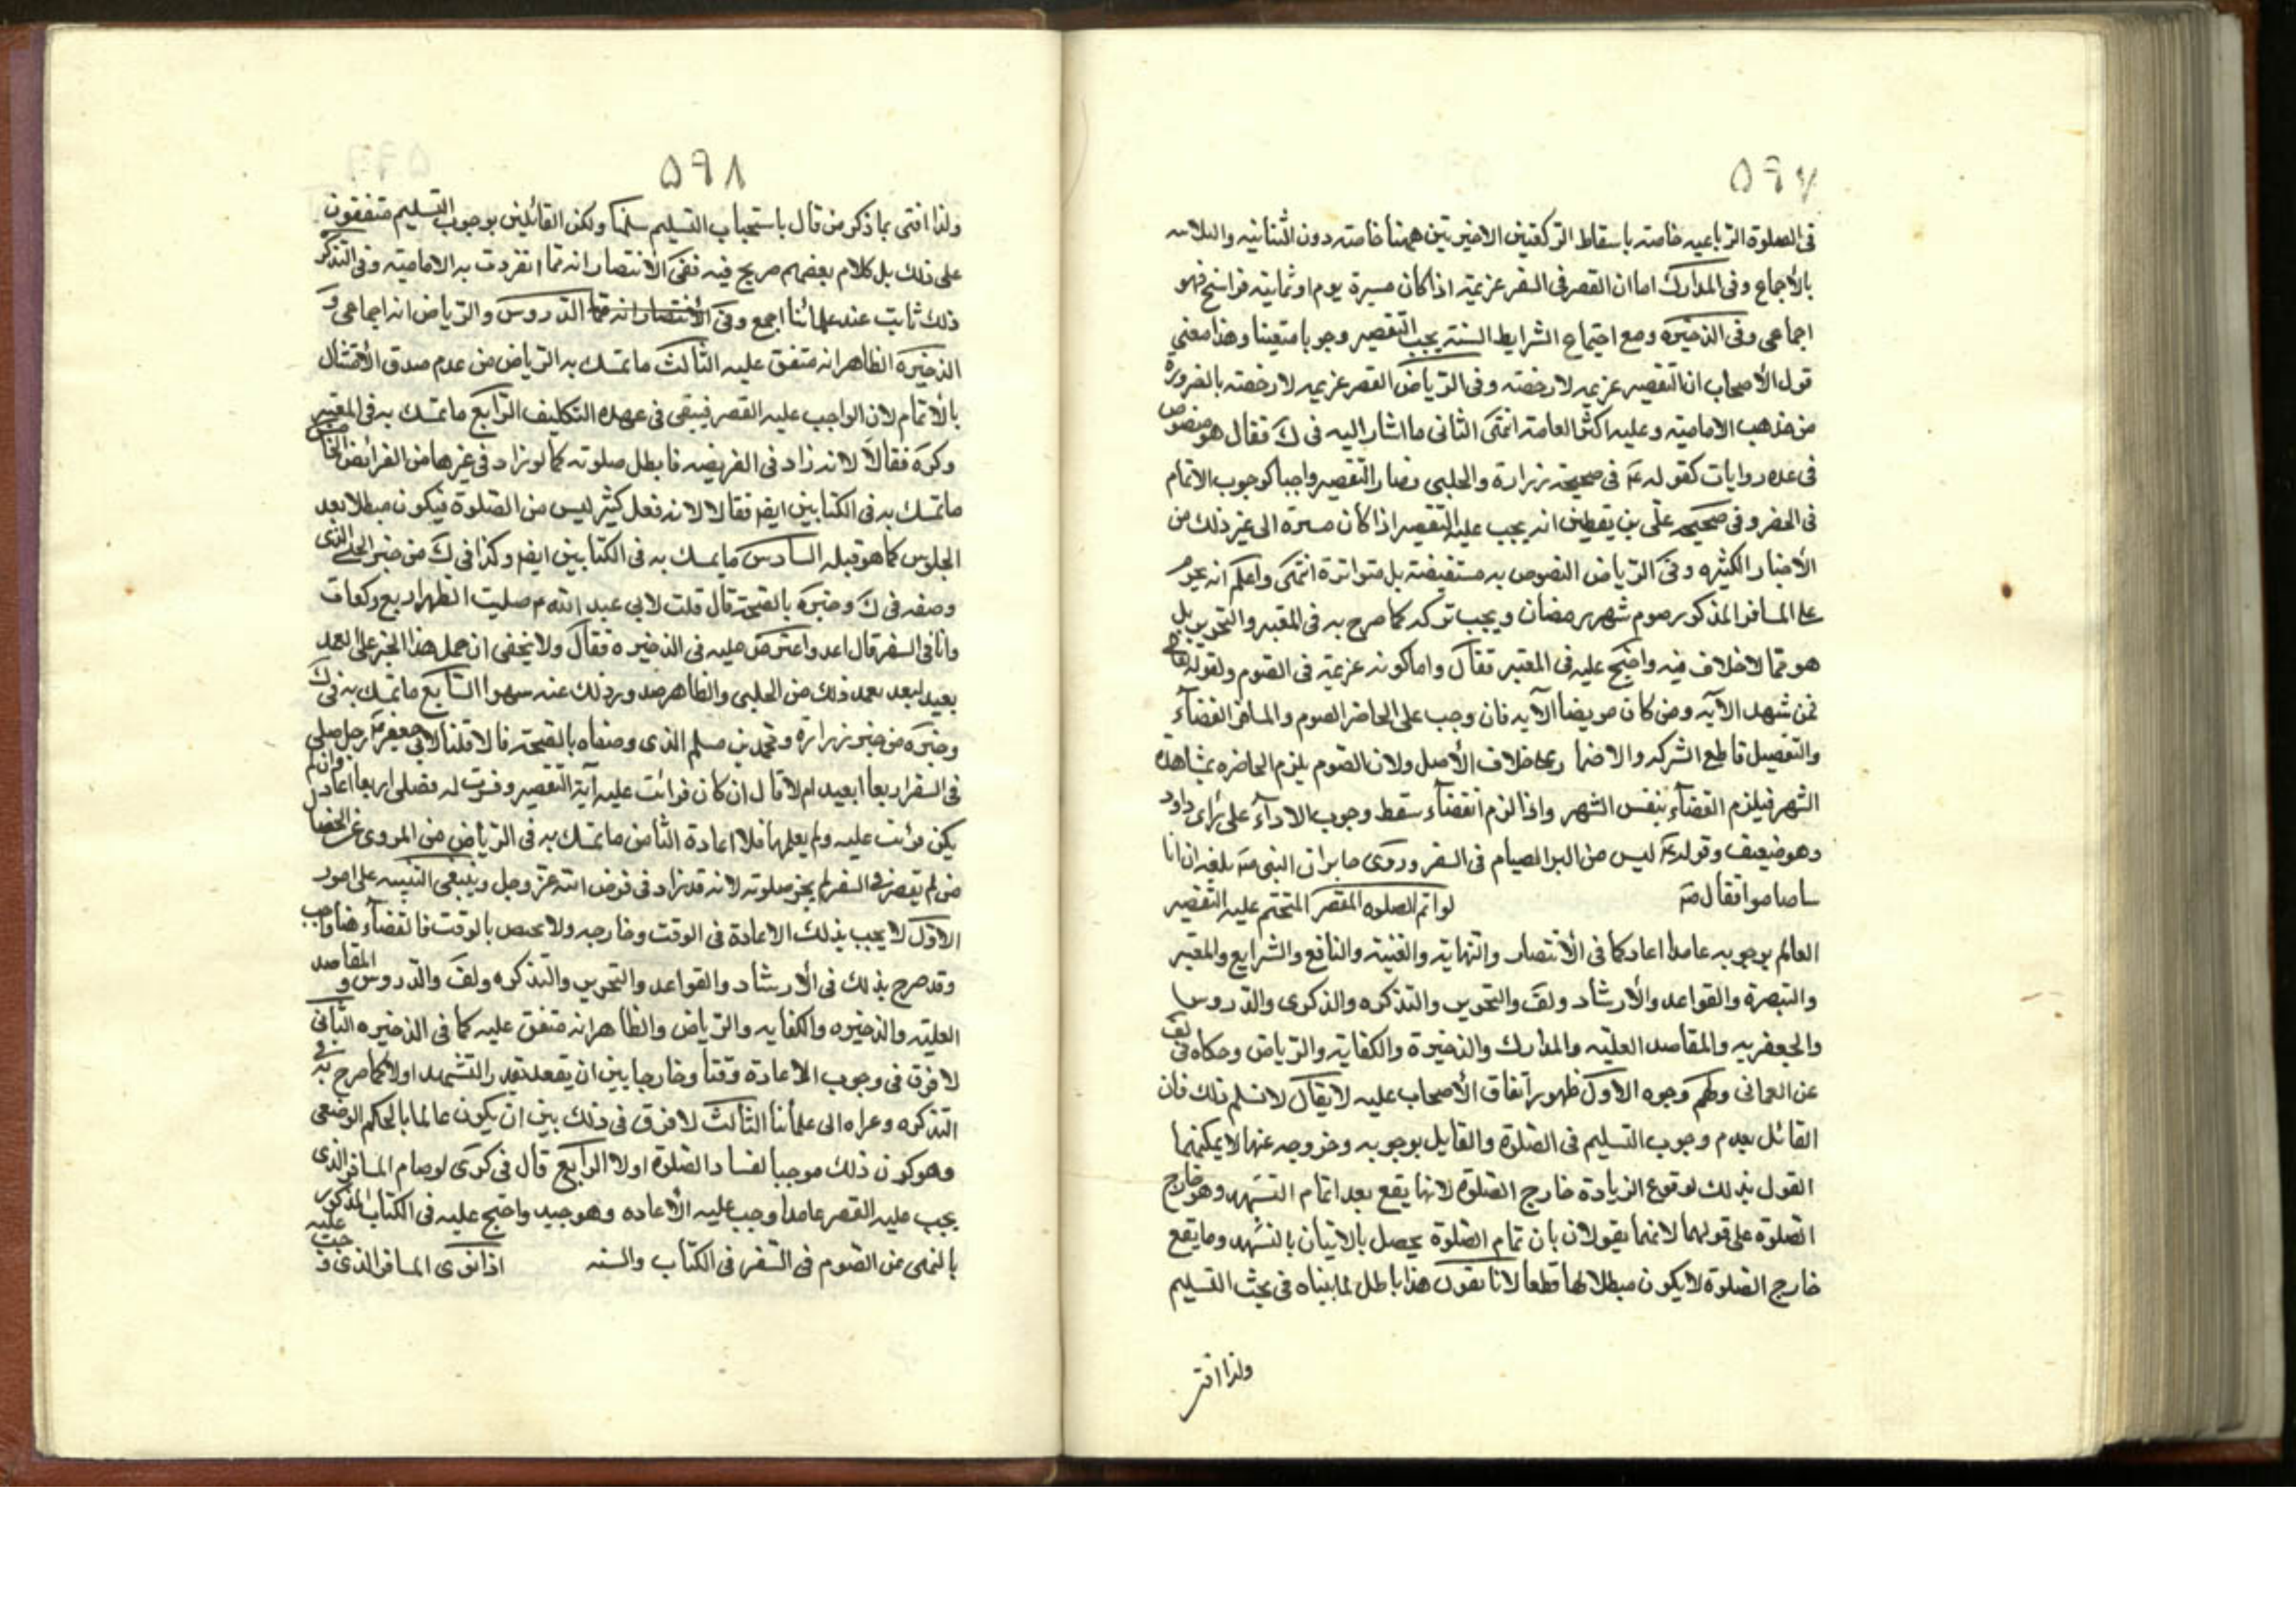 ٥٩٧
فى الصلوة الرباعيه خاصته باسقاط الركعتين الاخيرتين همنا خاصته دون الثنائيه والثلاثيه
بالأجماع وفى المدارك اما ان القصر فى السفر عزيمة اذا كان مسيرة يوم او ثمانية فراسخ فهو
اجماعى وفى الذخيره ومع اجتماع الشرايط الستة يجب التقصير وجوبا متعينا وهذا معنى
قول الأصحاب ان التقصير عزيمه لا رخصته وفى الرياض القصر عزيمه لا رخصته بالضرورة
من مذهب الامامية وعليه اكثر العامة انتهى الثانى ما اشار اليه فى ك فقال هو منصوص
فى عده روايات كقوله ع فى صحيحة زرارة والحلبى فصار التقصير واجبا كوجوب الاتمام
فى الحضر وفى صحيحه على بن يقطين انه يجب عليه التقصير اذا كان مسيرة الى غير ذلك من
الأخبار الكثيره وفى الرياض النصوص به مستفيضة بل متواترة انتهى واعلم انه يحرم
على المسافر المذكور صوم شهر رمضان ويجب تركه كما صرح به فى المعتبر والتحرير بل
هو مما لا خلاف فيه واحتج عليه فى المعتبر فقال واما كونه عزيمة فى الصوم ولقوله تعالى
فمن شهد الآيه ومن كان مريضا الآيه فان وجب على الحاضر الصوم والمسافر القضآء
والتفصيل قاطع الشركه والاضمار خلاف الأصل ولان الصوم يلزم الحاضره بمشاهدة
الشهر فيلزم القضآء بنفس الشهر واذا لزم القضآء سقط وجوب الادآء على راى داود
وهو ضعيف وقوله ليس من البر الصيام فى السفر وروى جابر ان النبى ص بلغه ان انا
سا صاموا فقال ص لو اتم الصلوه المقصر المتحتم عليه التقصير
العالم بوجوبه عامدا اعاد كما فى الأنتصار والنهاية والغنية والنافع والشرايع والمعتبر
والتبصرة والقواعد والأرشاد ولف والتحرير والتذكره والذكرى والدروس
والجعفريه والمقاصد العليه والمدارك والذخيرة والكفاية والرياض وحكاه فى لف
عن العمانى ولهم وجوه الاول ظهور اتفاق الأصحاب عليه لا يقال لا نسلم ذلك فان
القائل بعدم وجوب التسليم فى الصلوة والقايل بوجوبه وخروجه عنها لا يمكنهما
القول بذلك لوقوع الزيادة خارج الصلوة لانها يقع بعد اتمام التشهد وهو خارج
الصلوة على قولهما لانهما يقولان بان تمام الصلوة يحصل بالاتيان بالتشهد وما يقع
خارج الصلوة لا يكون مبطلا لها قطعا لانا نقول هذا باطل لما بيناه فى بحث التسليم
ولذا افتى
٥٩٨
ولذا افتى بما ذكر من قال باستحباب التسليم سلمنا ولكن القائلين بوجوب التسليم متفقون
على ذلك بل كلام بعضهم صريح فيه ففى الأنتصار انه مما انفردت به الامامية وفى التذكره
ذلك ثابت عند علمائنا اجمع وفى الأنتصار انه مما الدروس والرياض انه اجماعى و
الذخيره الظاهر انه متفق عليه الثالث ما تمسك به الرياض من عدم صدق الأمتثال
بالأتمام لان الواجب عليه القصر فيبقى فى عهده التكليف الرابع ما تمسك به فى المعتبر
وكره فقالا لانه زاد فى الفريضه فابطل صلوته كما لو زاد فى غيرها من الفرائض الخامس
ما تمسك به فى الكتابين ايضا فقالا لانه فعل كثير ليس من الصلوة فيكون مبطلا بعد
الجلوس كما هو قبله السادس ما تمسك به فى الكتابين ايضا وكذا فى ك من خبر الحلبى الذى
وصفه فى ك وخيره بالصحة قال قلت لابى عبد الله ع صليت الظهر اربع ركعات
وانا فى السفر قال اعد واعترض عليه فى الذخيره فقال ولا يخفى ان حمل هذا الخبر على العمد
بعيد لبعد تعمد ذلك من الحلبى والظاهر صدور ذلك عنه سهوا السابع ما تمسك به فى ك
وخيره من خبر زرارة ومحمد بن مسلم الذى وصفاه بالصحة قالا قلنا لابى جعفر ع رجل صلى
فى السفر اربعا ايعيد ام لا قال ان كان قرائت عليه آية التقصير وفسرت له فصلى اربعا اعاد وان لم
يكن قرئت عليه ولم يعلمها فلا اعادة الثامن ما تمسك به فى الرياض من المروى عن الخصال
من لم يقصر فى السفر لم يجز صلوته لانه قد زاد فى فرض الله عز وجل وينبغى التنبيه على امور
الاول لا يجب بذلك الاعادة فى الوقت وخارجه ولا يختص بالوقت فالقضآء هنا واجب
وقد صرح بذلك فى الأرشاد والقواعد والتحرير والتذكره ولف والدروس و المقاصد
العليه والذخيره والكفايه والرياض والظاهر انه متفق عليه كما فى الذخيره الثانى
لا فرق فى وجوب الأعادة وقتا وخارجا بين ان يقعد بقدر التشهد اولا كما صرح به فى
التذكره وعزاه الى علمائنا الثالث لا فرق فى ذلك بين ان يكون عالما بالحكم الوضعى
وهو كون ذلك موجبا لفساد الصلوة اولا الرابع قال فى كرى لو صام المسافر الذى
يجب عليه القصر عامدا وجب عليه الأعاده وهو جيد واحتج عليه فى الكتاب المذكور
بالنهى عن الصوم فى السفر فى الكتاب والسنه اذا نوى المسافر الذى وجب عليه